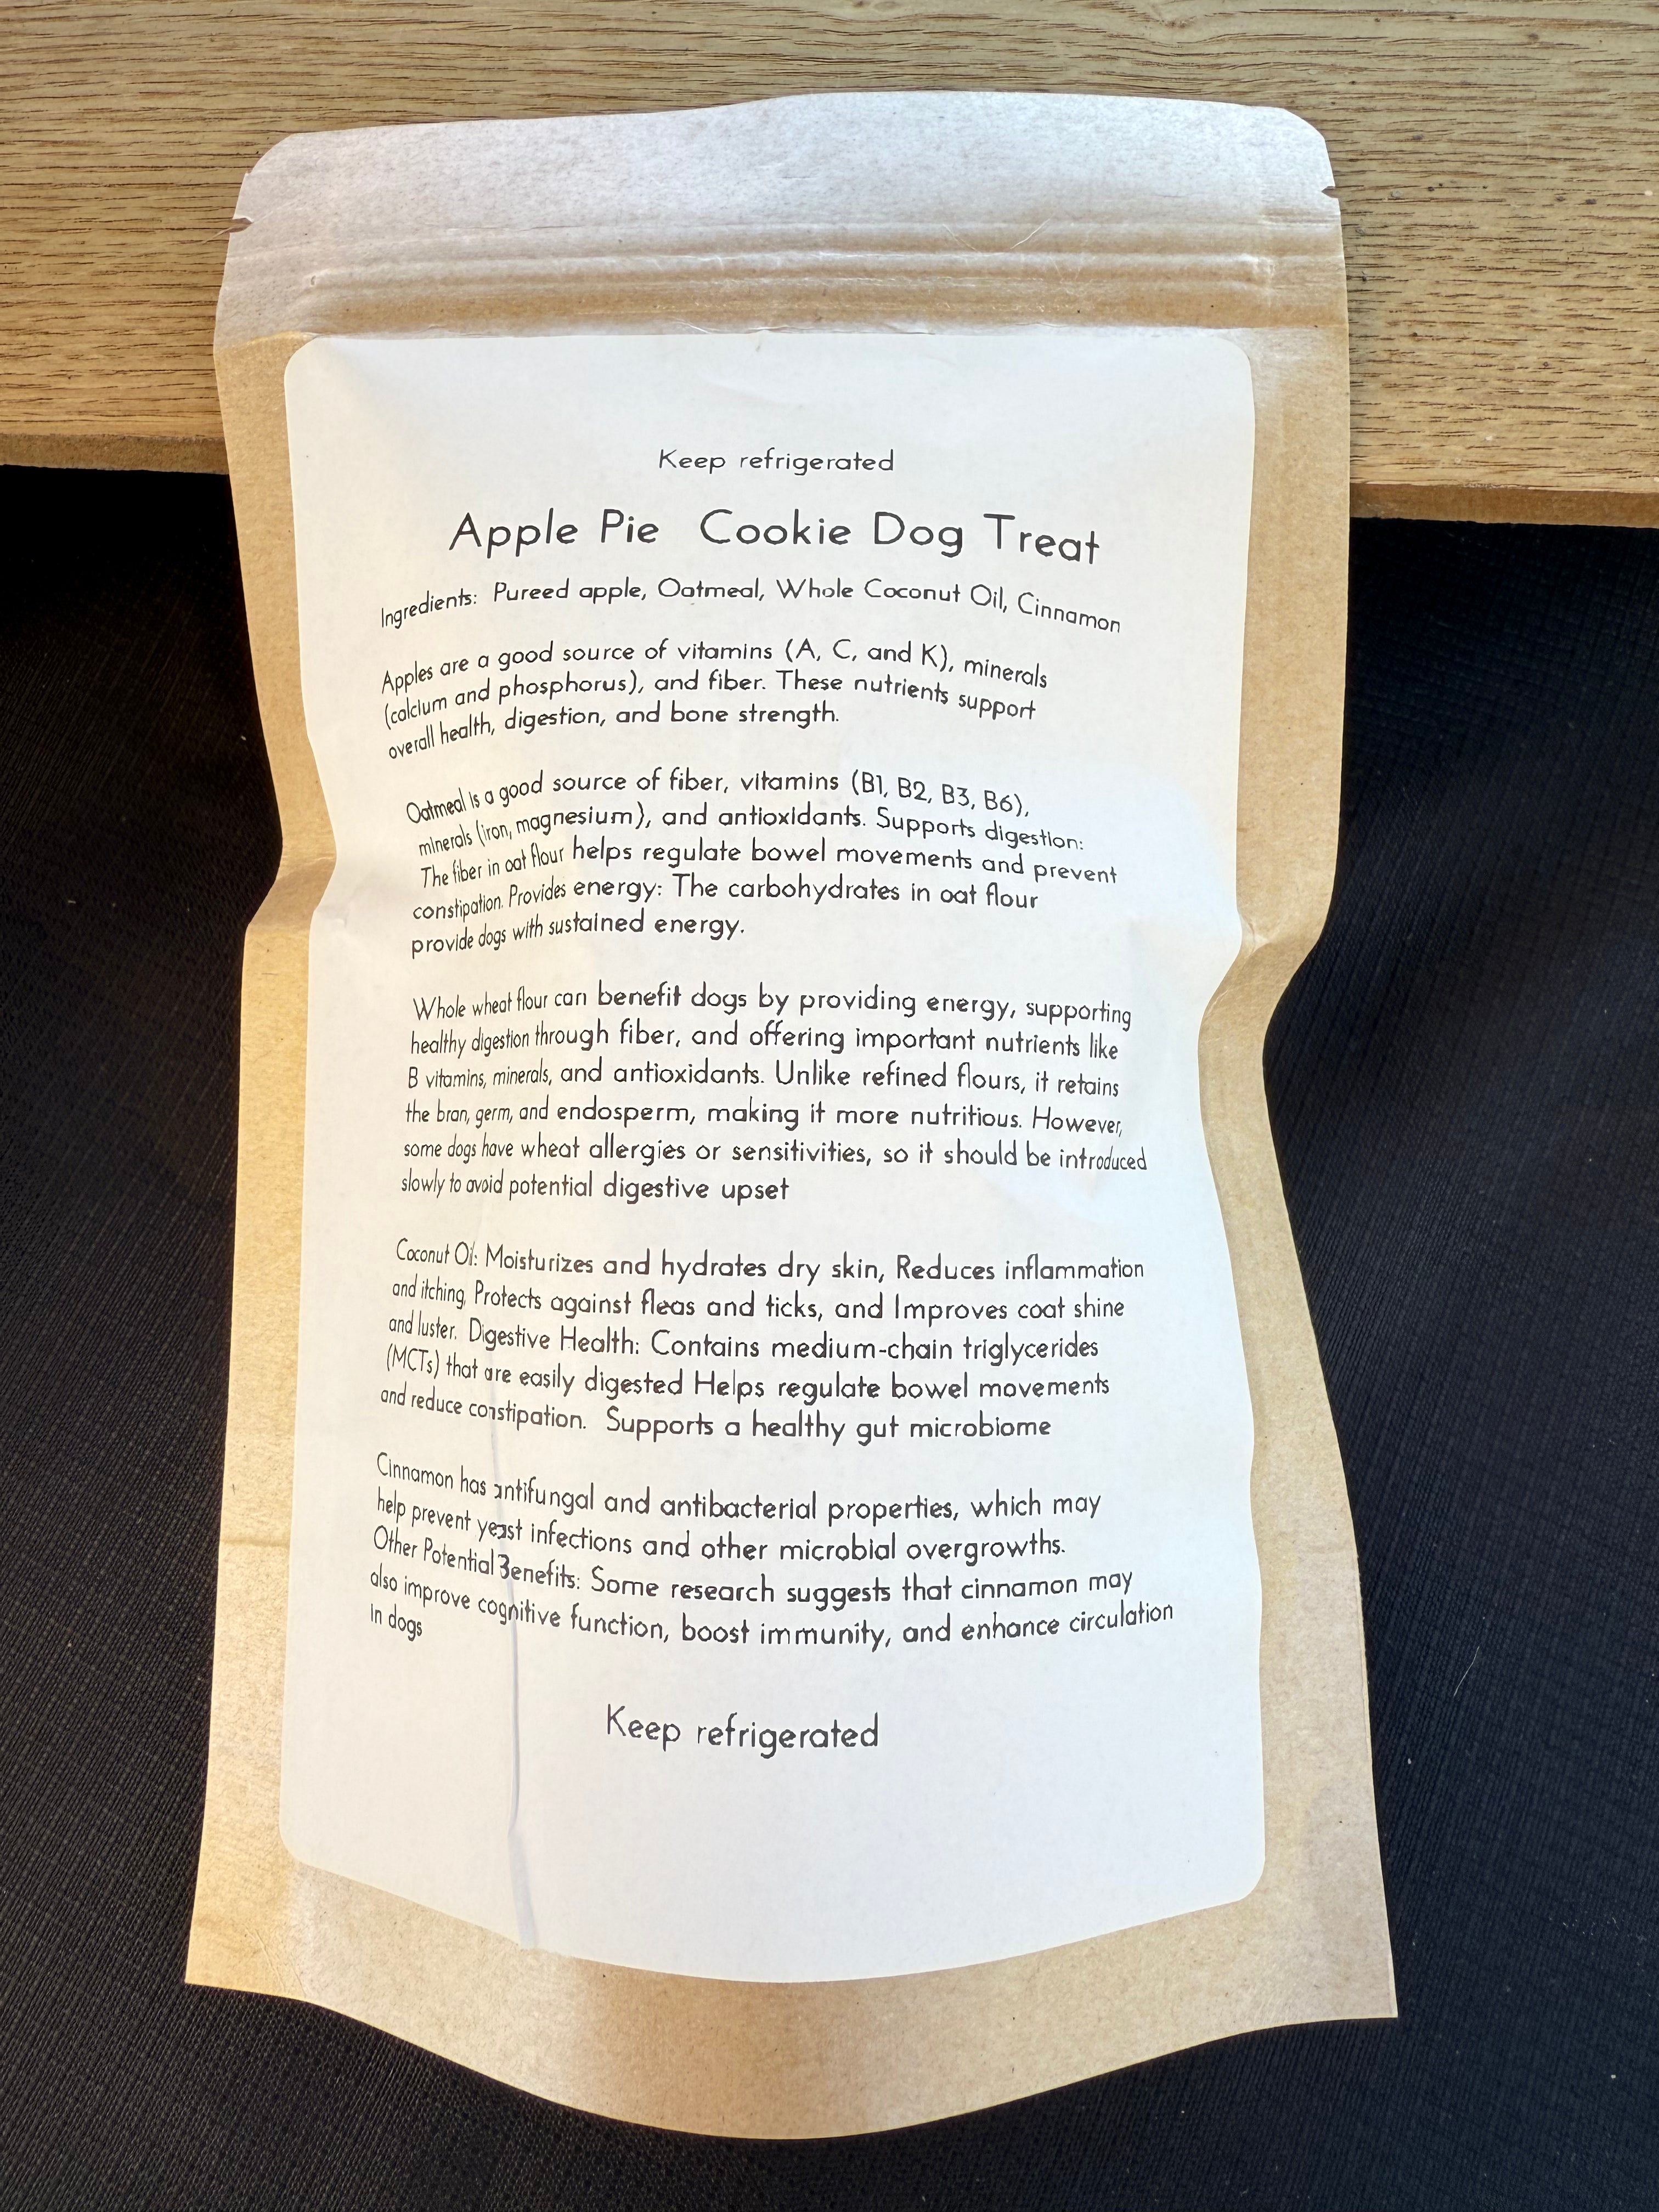 Keep refrigerated
Apple Pie Cookie Dog Treat
Ingredients: Pureed apple, Oatmeal, Whole Coconut Oil, Cinnamon
Apples are a good source of vitamins (A, C, and K), minerals
(calcium and phosphorus), and fiber. These nutrients support
overall health, digestion, and bone strength.
Oatmeal is a good source of fiber, vitamins (B1, B2, B3, B6),
minerals (iron, magnesium), and antioxidants. Supports digestion:
The fiber in oat flour helps regulate bowel movements and prevent
constipation. Provides energy: The carbohydrates in oat flour
provide dogs with sustained energy.
Whole wheat flour can benefit dogs by providing energy, supporting
healthy digestion through fiber, and offering important nutrients like
B vitamins, minerals, and antioxidants. Unlike refined flours, it retains
the bran, germ, and endosperm, making it more nutritious. However,
some dogs have wheat allergies or sensitivities, so it should be introduced
slowly to avoid potential digestive upset
Coconut Oil: Moisturizes and hydrates dry skin, Reduces inflammation
and itching, Protects against fleas and ticks, and Improves coat shine
and luster. Digestive Health: Contains medium-chain triglycerides
(MCTs) that are easily digested Helps regulate bowel movements
and reduce constipation. Supports a healthy gut microbiome
Cinnamon has antifungal and antibacterial properties, which may
help prevent yeast infections and other microbial overgrowths.
Other Potential Benefits: Some research suggests that cinnamon may
also improve cognitive function, boost immunity, and enhance circulation
in dogs
Keep refrigerated